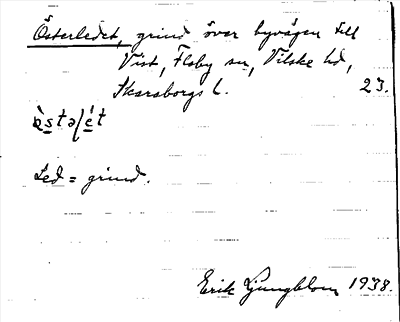 Österledet, grind över byvägen till
Vist, Floby sn, Vilske hd,
Skaraborgs l. 23.
Led = grind.
Erik Ljungblom 1938.